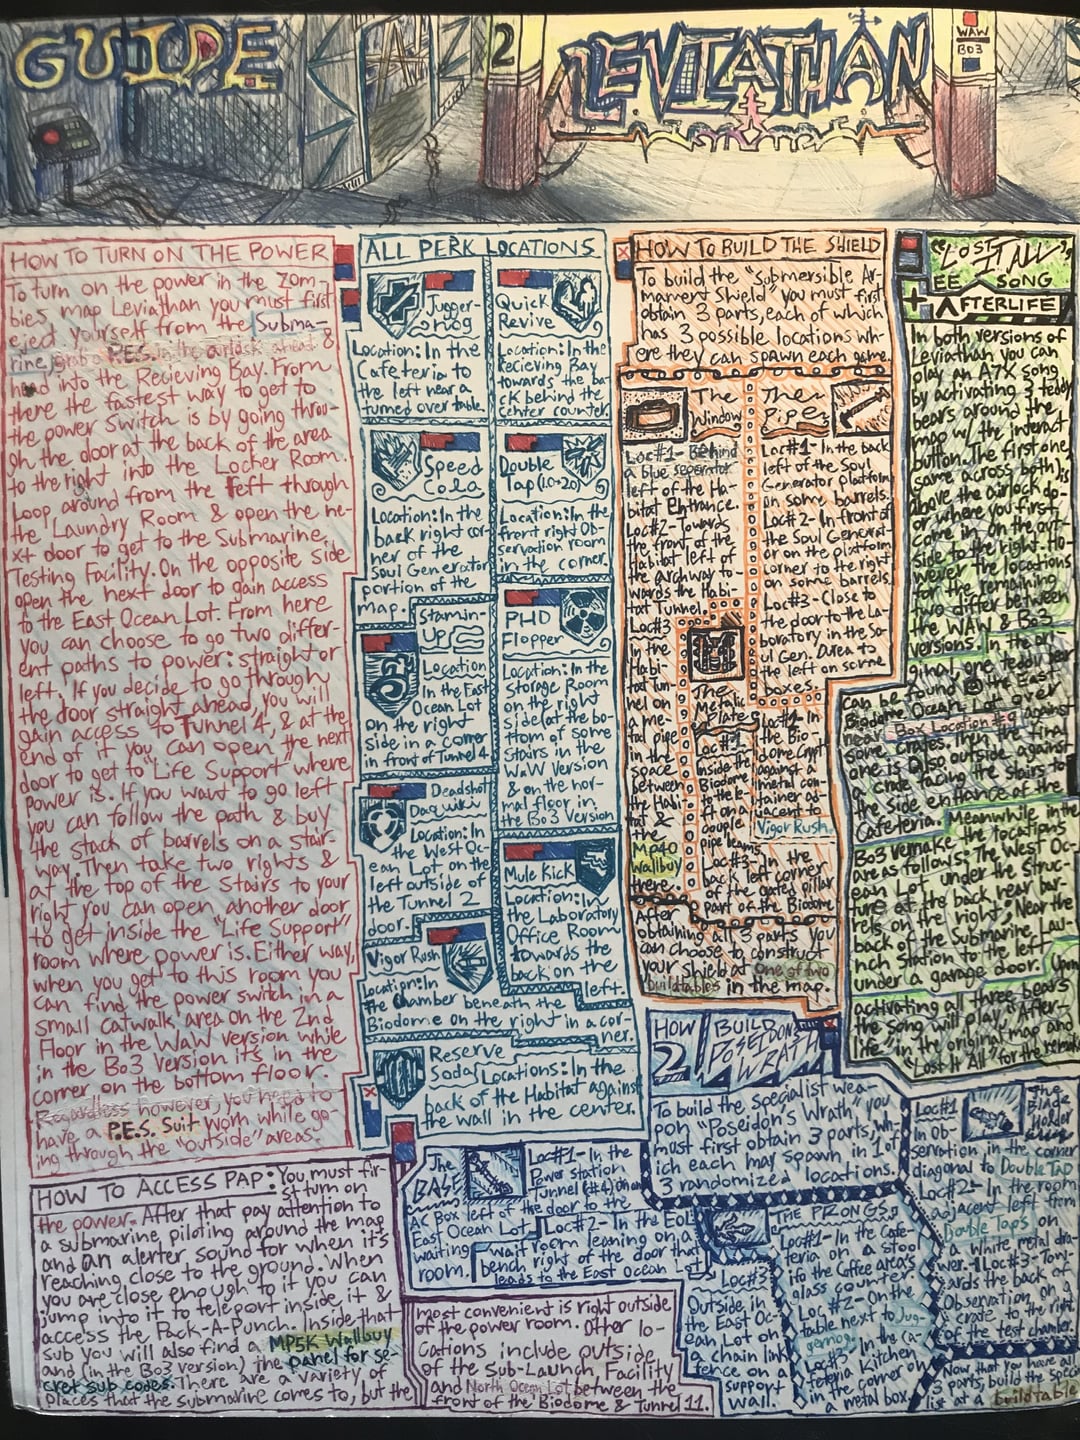 GUIDE
2
LEVIATHAN
WAW
Bo3
HOW TO TURN ON THE POWER
To turn on the power in the Zom-
bies map Leviathan you must first
eject yourself from the Subma-
rine, grab a P.E.S. in the airlock ahead &
head into the Recieving Bay. From
there the fastest way to get to
the power switch is by going throu-
gh the door at the back of the area
to the right into the Locker Room.
Loop around from the left through
the Laundry Room & open the ne-
xt door to get to the Submarine
Testing Facility. On the opposite side
open the next door to gain access
to the East Ocean Lot. From here
you can choose to go two differ-
ent paths to power: straight or
left. If you decide to go through
the door straight ahead, you will
gain access to Tunnel 4, & at the
end of it you can open the next
door to get to "Life Support" where
power is. If you want to go left
you can follow the path & buy
the stack of barrels on a stair-
way. Then take two rights &
at the top of the stairs to your
right you can open another door
to get inside the "Life Support"
room where power is. Either way,
when you get to this room you
can find the power switch in a
small catwalk area on the 2nd
Floor in the WaW version while
in the Bo3 version it's in the
corner on the bottom floor.
Regardless however, you need to
have a P.E.S. Suit worn while go-
ing through the "outside" areas.
ALL PERK LOCATIONS
Jugger-
nog
Location: In the
Cafeteria to
the left near a
turned over table.
Quick
Revive
Location: In the
Recieving Bay
towards the ba-
ck behind the
center counter.
Speed
Cola
Location: In the
back right cor-
ner of the
Soul Generator
portion of the
map.
Double
Tap (1.0+2.0)
Location: In the
front right Ob-
servation room
in the corner.
Stamin-
Up
Location
In the East
Ocean Lot
on the right
side in a corner
in front of Tunnel 4.
PHD
Flopper
Location: In the
Storage Room
on the right
side (at the bo-
ttom of some
Stairs in the
WaW version
& on the nor-
mal floor in
the Bo3 Version
Deadshot
Daqwiki
Location: In
the West Oc-
ean Lot on the
left outside of
the Tunnel 2
door.
Mule Kick
Location:
In the
Laboratory
Office Room
towards the
back on the
left.
Vigor Rush
Location: In
the Chamber beneath the
Biodome on the right in a cor-
ner.
Reserve
Soda
Locations: In the
back of the Habitat against
the wall in the center.
HOW TO BUILD THE SHIELD
To build the "Submersible Ar-
mament Shield" you must first
obtain 3 parts, each of which
has 3 possible locations wh-
ere they can spawn each game.
The
Window
Loc#1- Behind
a blue seperator
left of the Ha-
bitat Entrance.
Loc#2- Towards
the front of the
Habitat left of
the archway to-
wards the Habi-
tat Tunnel.
Loc#3
In the
Habi-
tat Tun-
nel on
a me-
tal pipe
in the
space
between
the Habi-
tat &
the
MP40
Wallbuy
there.
The
Pipe
Loc#1- In the back
left of the Soul
Generator platform
in some barrels.
Loc#2- In front of
the Soul Generat-
or on the platform
corner to the right
on some barrels.
Loc#3- Close to
the door to the La-
boratory in the So-
ul Gen. Area to
the left on some
boxes.
The
Metalic
Plate
Loc#1
Inside the
Biodome
to the le-
ft on a
couple
pipe beams.
In
the Bio
dome Crypt
against a
metal con-
tainer ad-
jacent to
Vigor Rush.
Loc#3- In the
back left corner
of the gated pillar
part of the Biodome
After
obtaining all 3 parts you
can choose to construct
your shield at one of two
buildtables in the map.
"LOST
IT ALL"
EE SONG
+ AFTERLIFE
In both versions of
Leviathan you can
play an A7X song
by activating 3 teddy
bears around the
map w/ the interact
button. The first one
same across both) is
above the airlock do-
or where you first
came in on the out-
side to the right. Ho-
wever the locations
for the remaining
two differ between
the WAW & Bo3
versions. In the ori
ginal, one teddy bear
can be found @ the East
Biodome Ocean Lot over
near Box Location against
some crates. Then the final
one is also outside against
a crate facing the Stairs to
the side entrance of the
Cafeteria. Meanwhile in the
Bo3 remake the locations
are as follows: The West Oc-
ean Lot, under the Struc-
ture at the back near bar-
rels on the right, Near the
back of the Submarine Lau-
nch Station to the left
under a garage door. Upon
activating all three bears
the song will play, "After-
life" in the original map and
"Lost It All" for the remake
HOW TO ACCESS PAP: You must fir-
st turn on
the power. After that pay attention to
a submarine piloting around the map
and an alerter sound for when it's
reaching close to the ground. When
you are close enough to it you can
jump into it to teleport inside it &
access the Pack-A-Punch. Inside that
sub you will also find a MP5K Wallbuy
and (in the Bo3 version) the panel for se-
cret sub codes. There are a variety of
places that the submarine comes to, but the
most convenient is right outside
of the power room. Other lo-
cations include outside
of the Sub-Launch Facility
and North Ocean Lot between the
front of the Biodome & Tunnel 11.
HOW
2
BUILD
POSEIDON'S
WRATH
To build the specialist wea-
pon "Poseidon's Wrath" you
must first obtain 3 parts, wh-
ich each may spawn in 1 of
3 randomized locations.
The
BASE
Loc#1- In the
Power Station
Tunnel (#4) on an
AC Box left of the door to the
East Ocean Lot
Loc#2- In the EOL
waiting
room.
wait room leaning on a
bench right of the door that
leads to the East Ocean Lot
Loc#3
Outside in
the East Oc-
ean Lot on
a chain link
fence on a
support
wall.
THE PRONGS
Loc#1- In the Cafe-
teria on a stool
ifo the Coffee area's
glass counter.
Loc#2- On the
table next to Jug-
gernog.
Loc#3- In the Ca-
feteria Kitchen
in the corner on
a metal box.
The
Blade
Holder
Loc#1
In Ob-
servation in the corner
diagonal to Double Tap
Loc#2- In the room
adjacent left from
Double Taps on
a white metal dra-
wer. Loc#3- Tow-
ards the back of
Observation on a
crate to the right
of the test chamber.
Now that you have all
3 parts, build the Specia
list at a buildtable